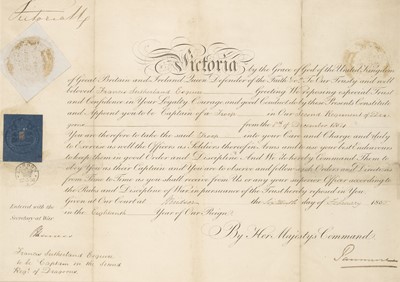 Victoria R
Victoria by the Grace of God of the United Kingdom
of Great Britain and Ireland Queen Defender of the Faith &c. To Our Trusty and well
beloved Francis Sutherland Esquire Greeting We reposing especial Trust
and Confidence in your Loyalty Courage and good Conduct do by these Presents Constitute
and Appoint you to be Captain of a Troop in Our Second Regiment of Dra-
goons from the
You are therefore to take the said Troop into your Care and Charge and duly
to Exercise as well the Officers as Soldiers thereof in Arms and to use your best endeavours
to keep them in good Order and Discipline And We do hereby Command Them to
Obey You as their Captain and You are to observe and follow such Orders and Directions
from Time to Time as you shall receive from Us or any your superior Officer according to
the Rules and Discipline of War in pursuance of the Trust hereby reposed in You
Given at Our Court at the day of February
in the Year of Our Reign
Entered with the
Secretary at War
By Her Majesty's Command
Panmure
Francis Sutherland Esquire
to be Captain in the Second
Regt. of Dragoons